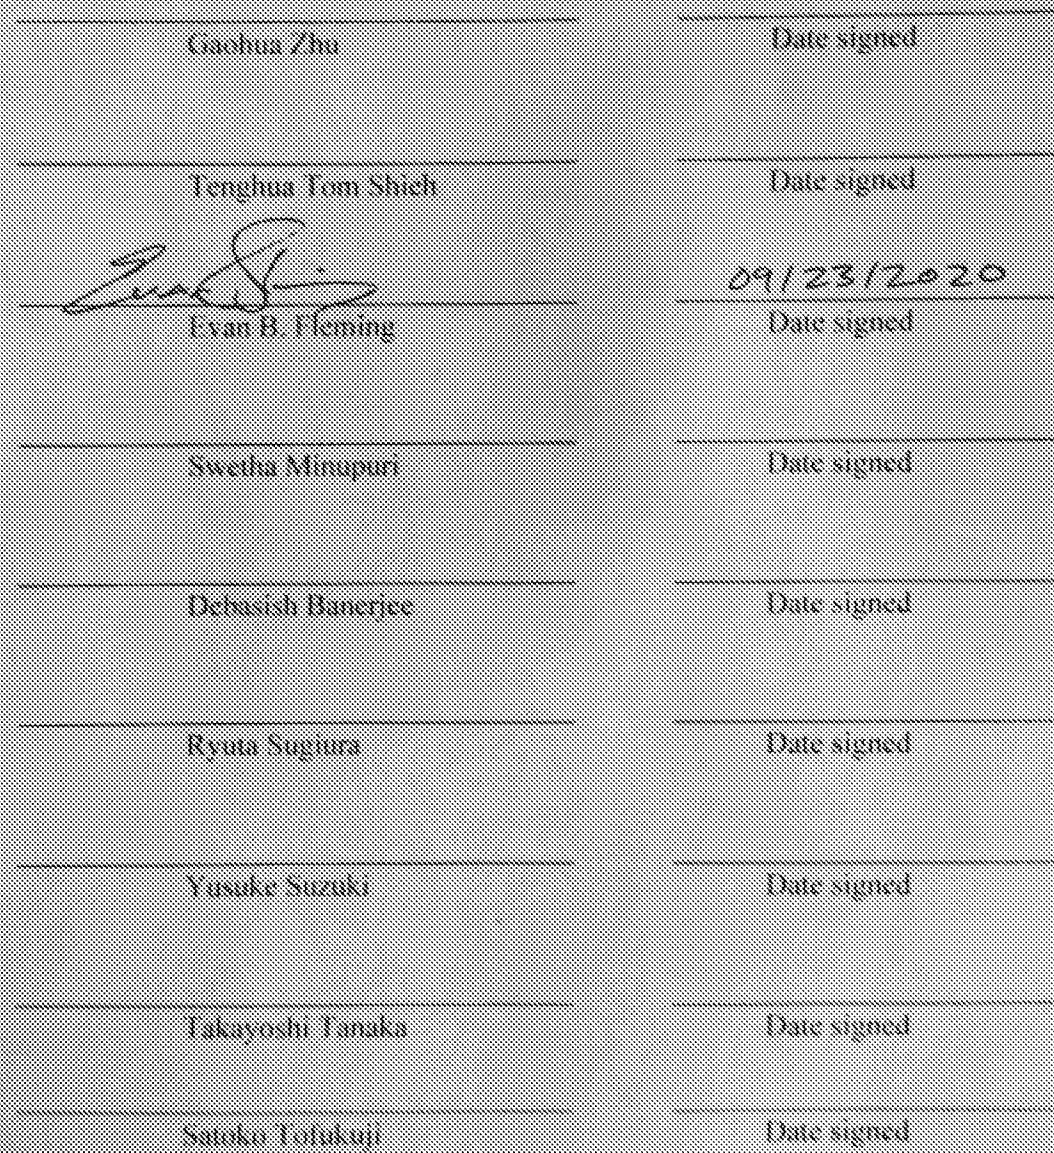 Gaohua Zhu Date signed
Tenghua Tom Shieh Date signed
09/23/2020
Evan B. Fleming Date signed
Swetha Minupuri Date signed
Debasish Banerjee Date signed
Ryuta Sugiura Date signed
Yusuke Suzuki Date signed
Takayoshi Tanaka Date signed
Satoko Tofukuji Date signed